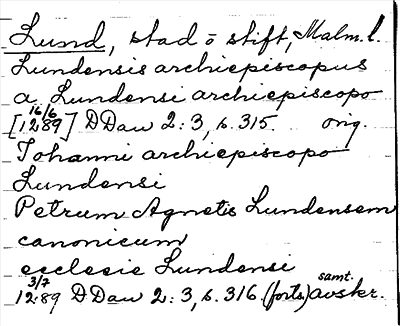 Lund, stad o stift, Malm. l.
Lundensis archiepiscopus
a Lundensi archiepiscopo
16/6
[1289] D Dan 2:3, s. 315. orig.
Johanni archiepiscopo
Lundensi
Petrum Agnetis Lundensem
canonicum
ecclesie Lundensi
3/7 samt.
1289 D Dan 2:3, s. 316 (forts.) avskr.